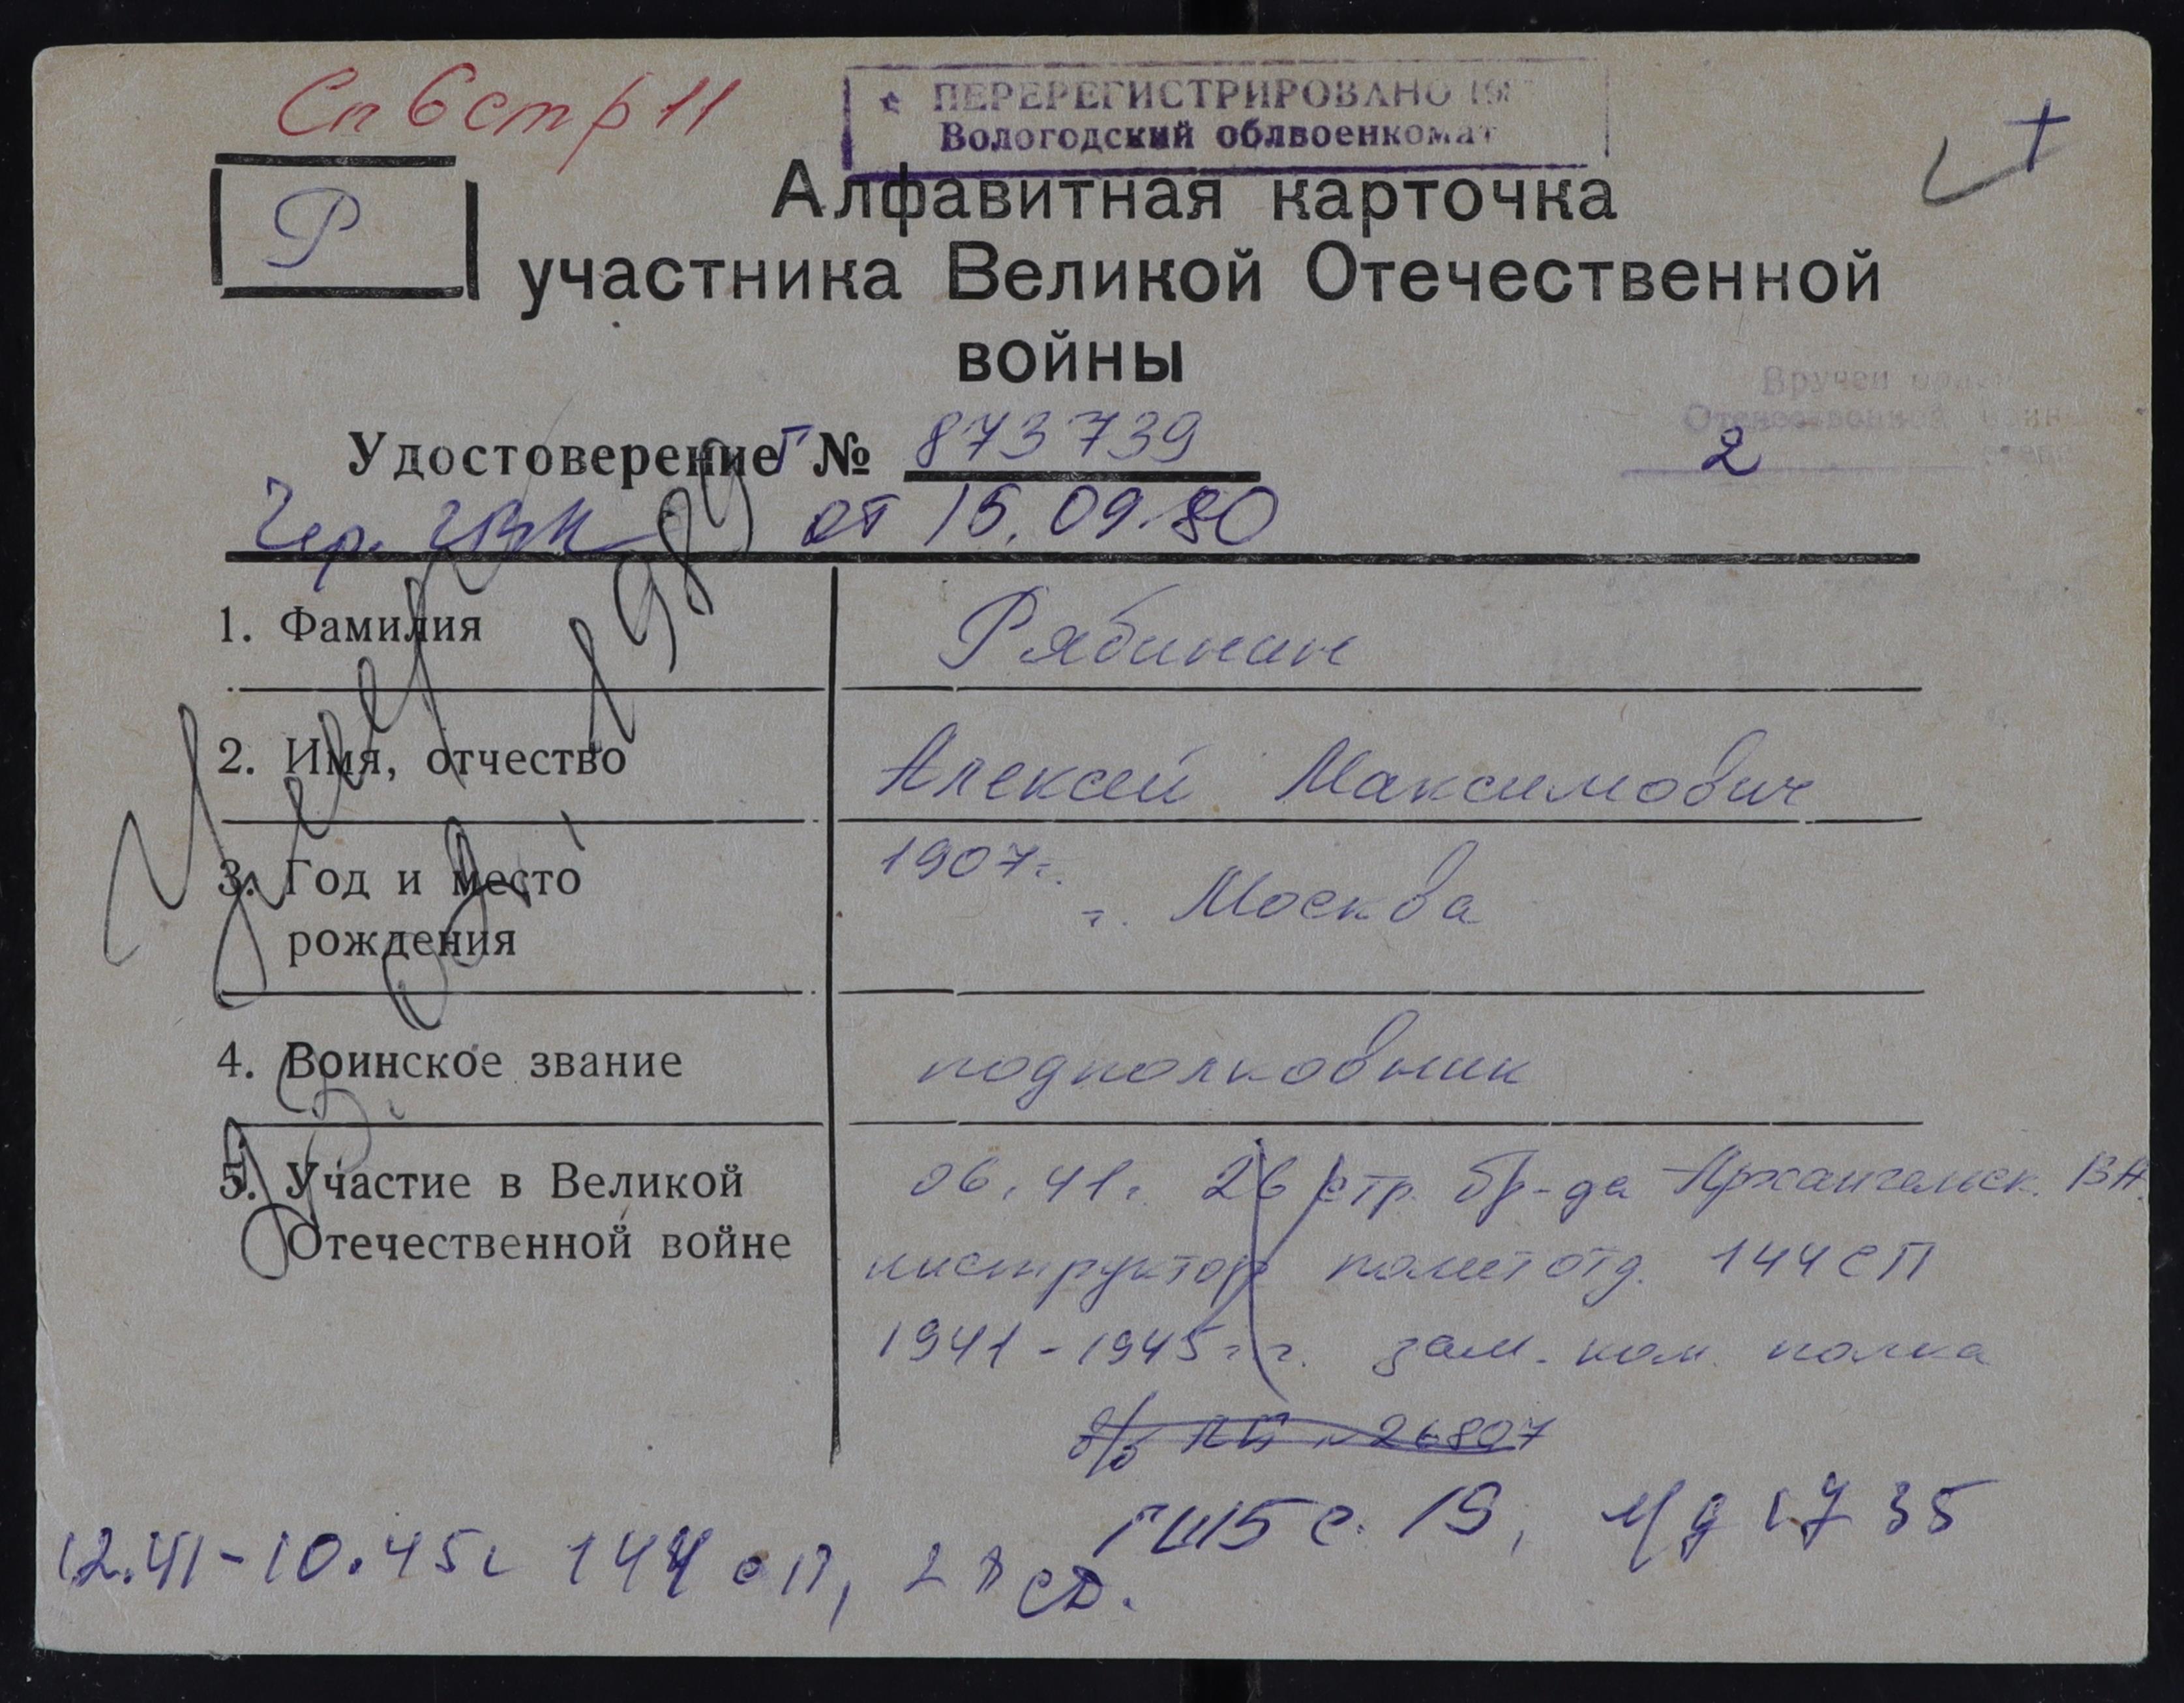 Сп 6 стр 11
ПЕРЕРЕГИСТРИРОВАНО 19
Вологодский облвоенкомат
Р
Алфавитная карточка
участника Великой Отечественной
войны
Вручен
Отечественной
2
Удостоверение Г № 873739
Чер. ГВК от 15.09.80
Умер 1989
1. Фамилия Рябинин
2. Имя, отчество Алексей Максимович
3. Год и место 1907г.
рождения г. Москва
4. Воинское звание подполковник
5. Участие в Великой 06.41г. 26 стр. бр-да Архангельск. ВО.
Отечественной войне инструктор политотд. 144 СП
1941-1945гг. зам. ком. полка
в/ч ПП 26807
ГШ5 с. 19,
12.41-10.45г 144 сп, 28 сд.